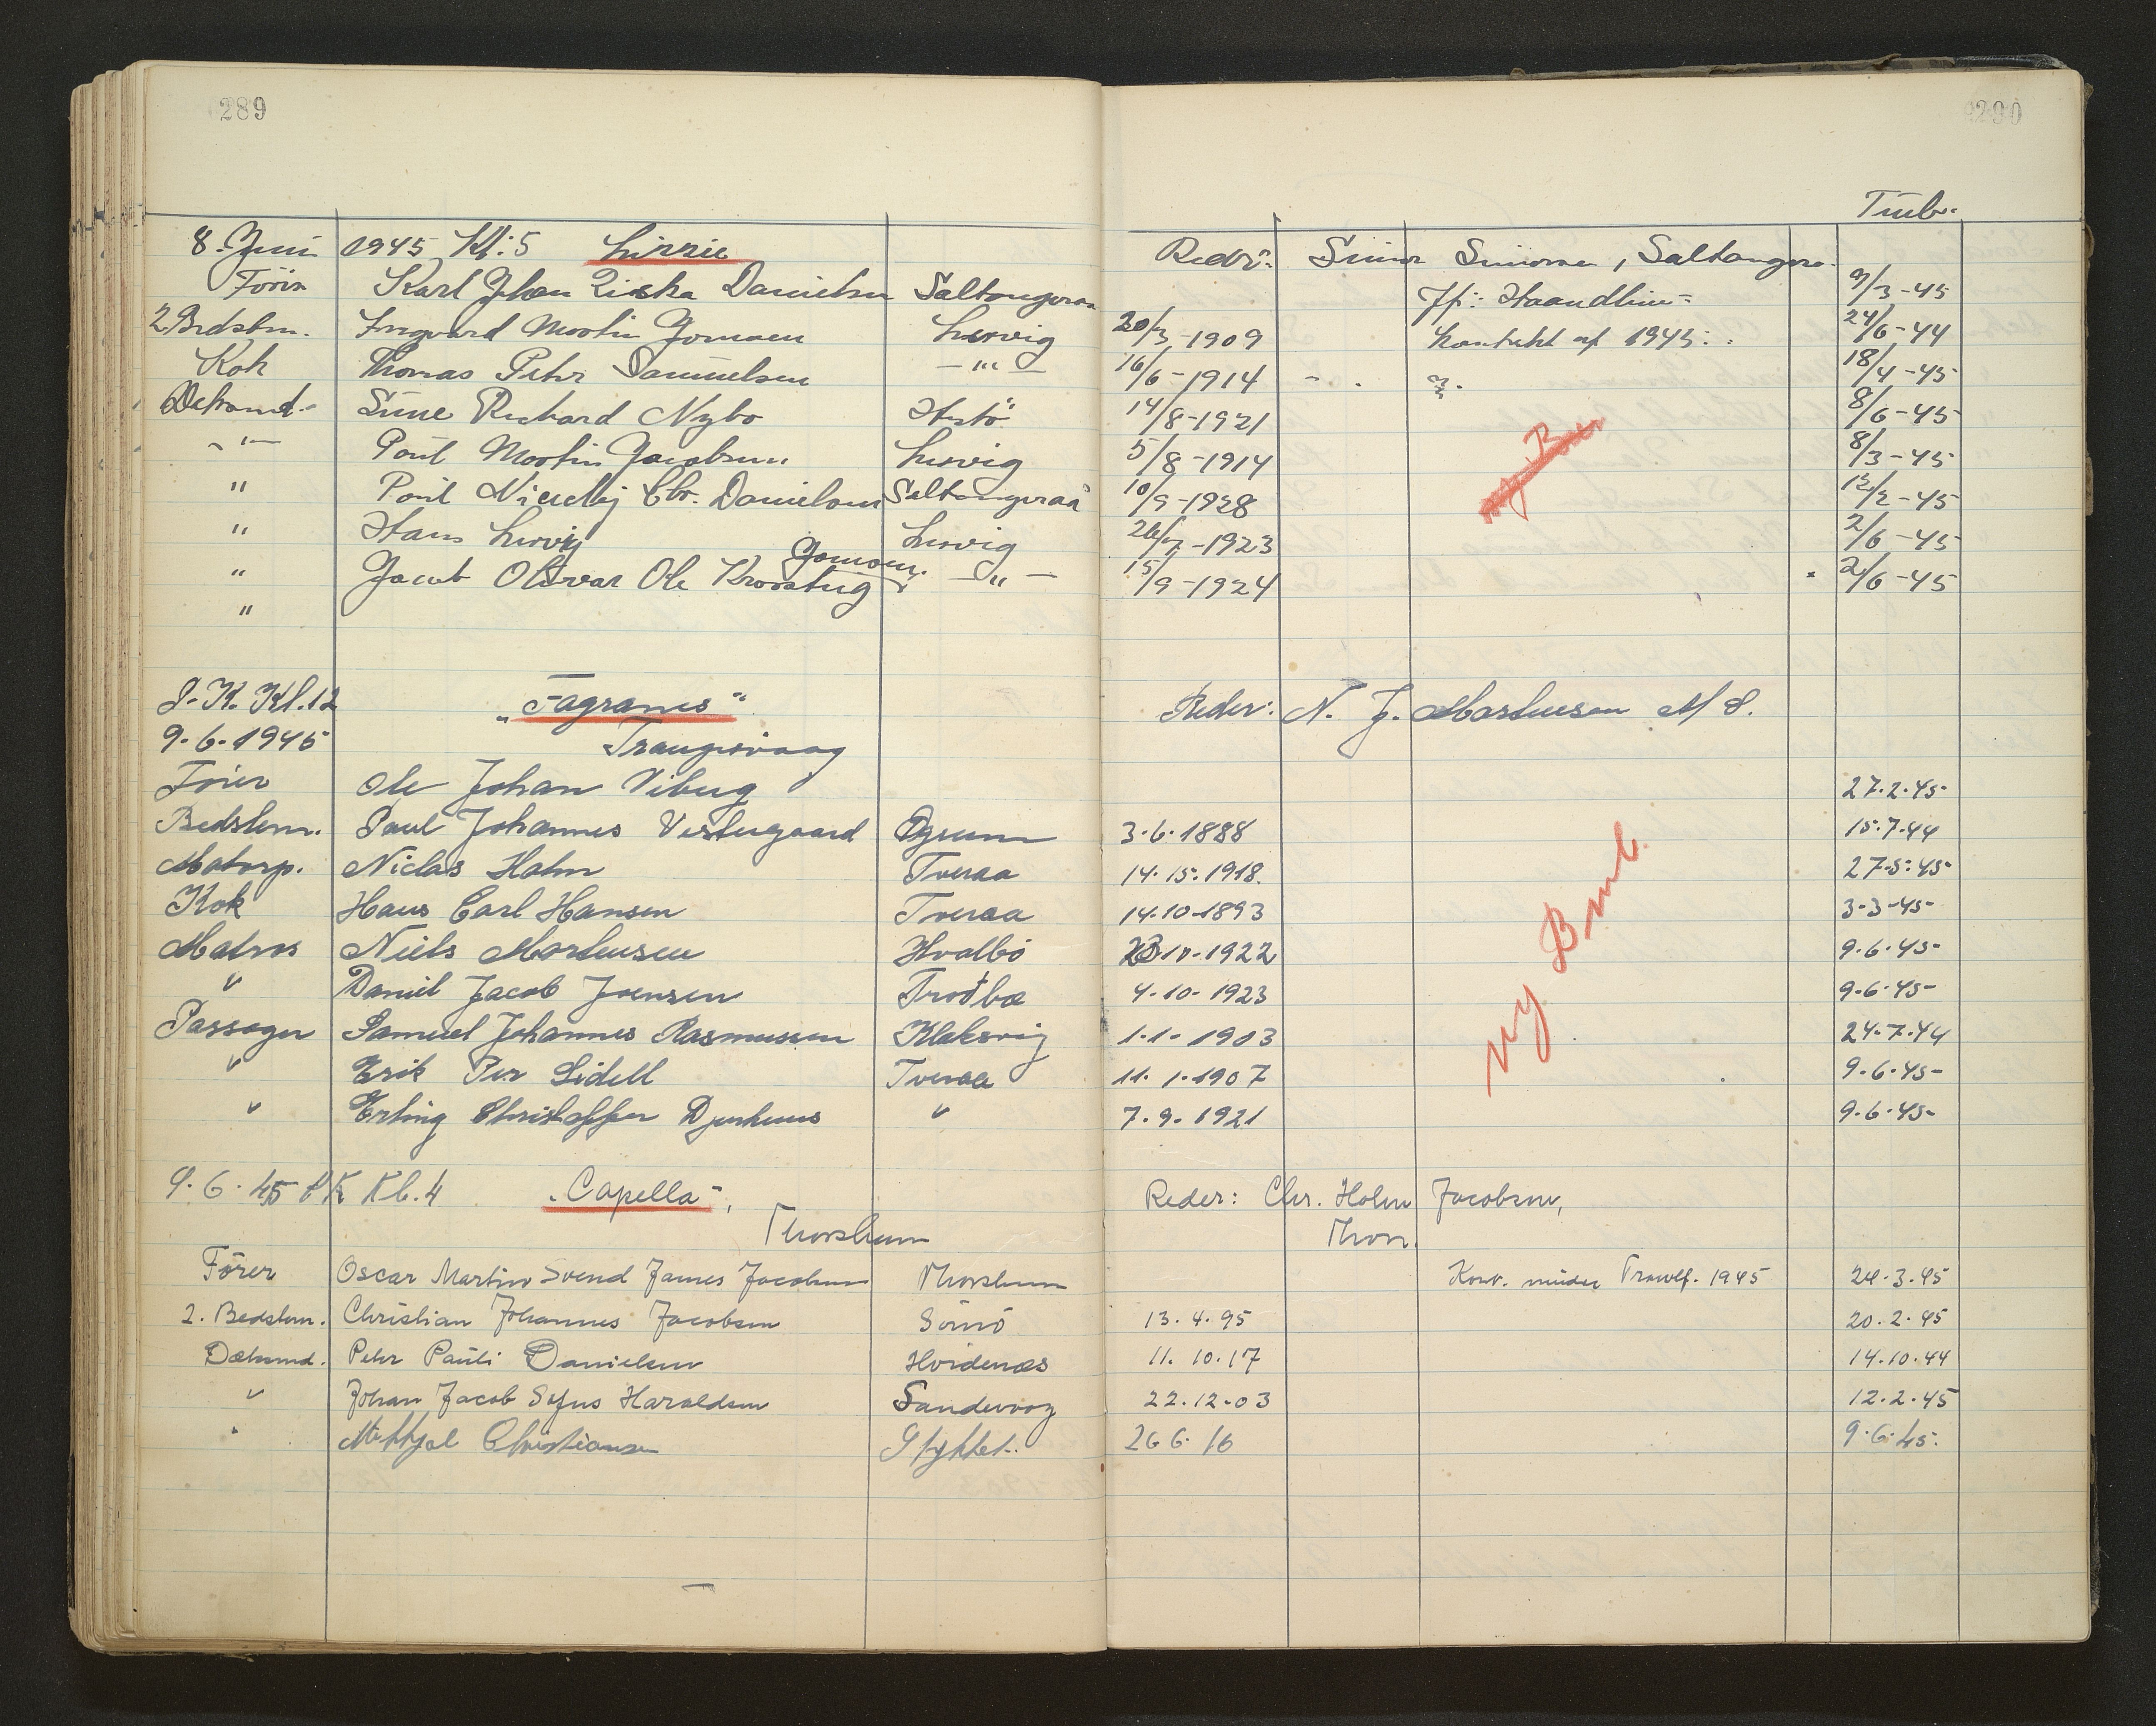 289
290
Tuib.
8. Juni 1945 Kl: 5 Lizzie Reder: Simun Simonsen, Saltangeraa
Förer Karl Johan Ziska Danielsen Saltangeraa Jf: Haandline 9/3-45
2. Bedstm. Ingvard Martin Joensen Lervig 20/3-1909 Kontrakt af 1943: 24/6-44
Kok Thomas Peter Samuelsen -"- 16/6-1914 18/4-45
Detmand. Sune Richard Nybo Hestö 14/8-1921 8/6-45
-"- Poul Martin Jacobsen Lervig 5/8-1914 8/3-45
" Poul Nicolaj Chr. Danielsen Saltangeraa 10/9-1928 12/2-45
" Hans Lervig Lervig 1923 2/6-45
" Jacob Olivar Ole Joensen -"- 15/9-1924 2/6-45
"
ny Bm.
P.K. Kl. 12 "Fagranes" Reder: N. J. Mortensen A/S.
9.6.1945 Trangisvaag
Förer Ole Johan Viberg 27.2.45-
Bedstem. Paul Johannes Vestergaard Øgrum 3.6.1888 15.7.44
Motorp. Niclas Holm Tveraa 14.15.1918. 27.5.45-
Kok Hans Carl Hansen Tveraa 14.10.1893 3-3-45-
Matros Niels Mortensen Hvalbö 1922 9.6.45-
" Daniel Jacob Joensen Frodba 4.10-1923 9.6.45-
Passager Samuel Johannes Rasmussen Klaksvig 1.1-1903 24.7.44
" Erik Per Lidell Tveraa 11.1.1907 9.6.45-
" Erling Christoffer Djurhuus " 7.9.1921 9.6.45-
ny Bml.
9.6.45 P K Kl. 4 "Capella", Reder: Chr. Holm Jacobsen,
Thorshavn Thorr.
Förer Oscar Martin Svend James Jacobsen Thorshavn Kont. mindre Trawlf. 1945 24.3.45
2. Bedstem. Christian Johannes Jacobsen 13.4.95 20.2.45
Dæksmd. Peter Pauli Danielsen Hvidenæs 11.10.17 14.10.44
" Johan Jacob Sofus Haraldsen Sandevaag 22.12.03 12.2.45
" Mikkjal Christiansen Stykket. 26 6 16 9.6.45.